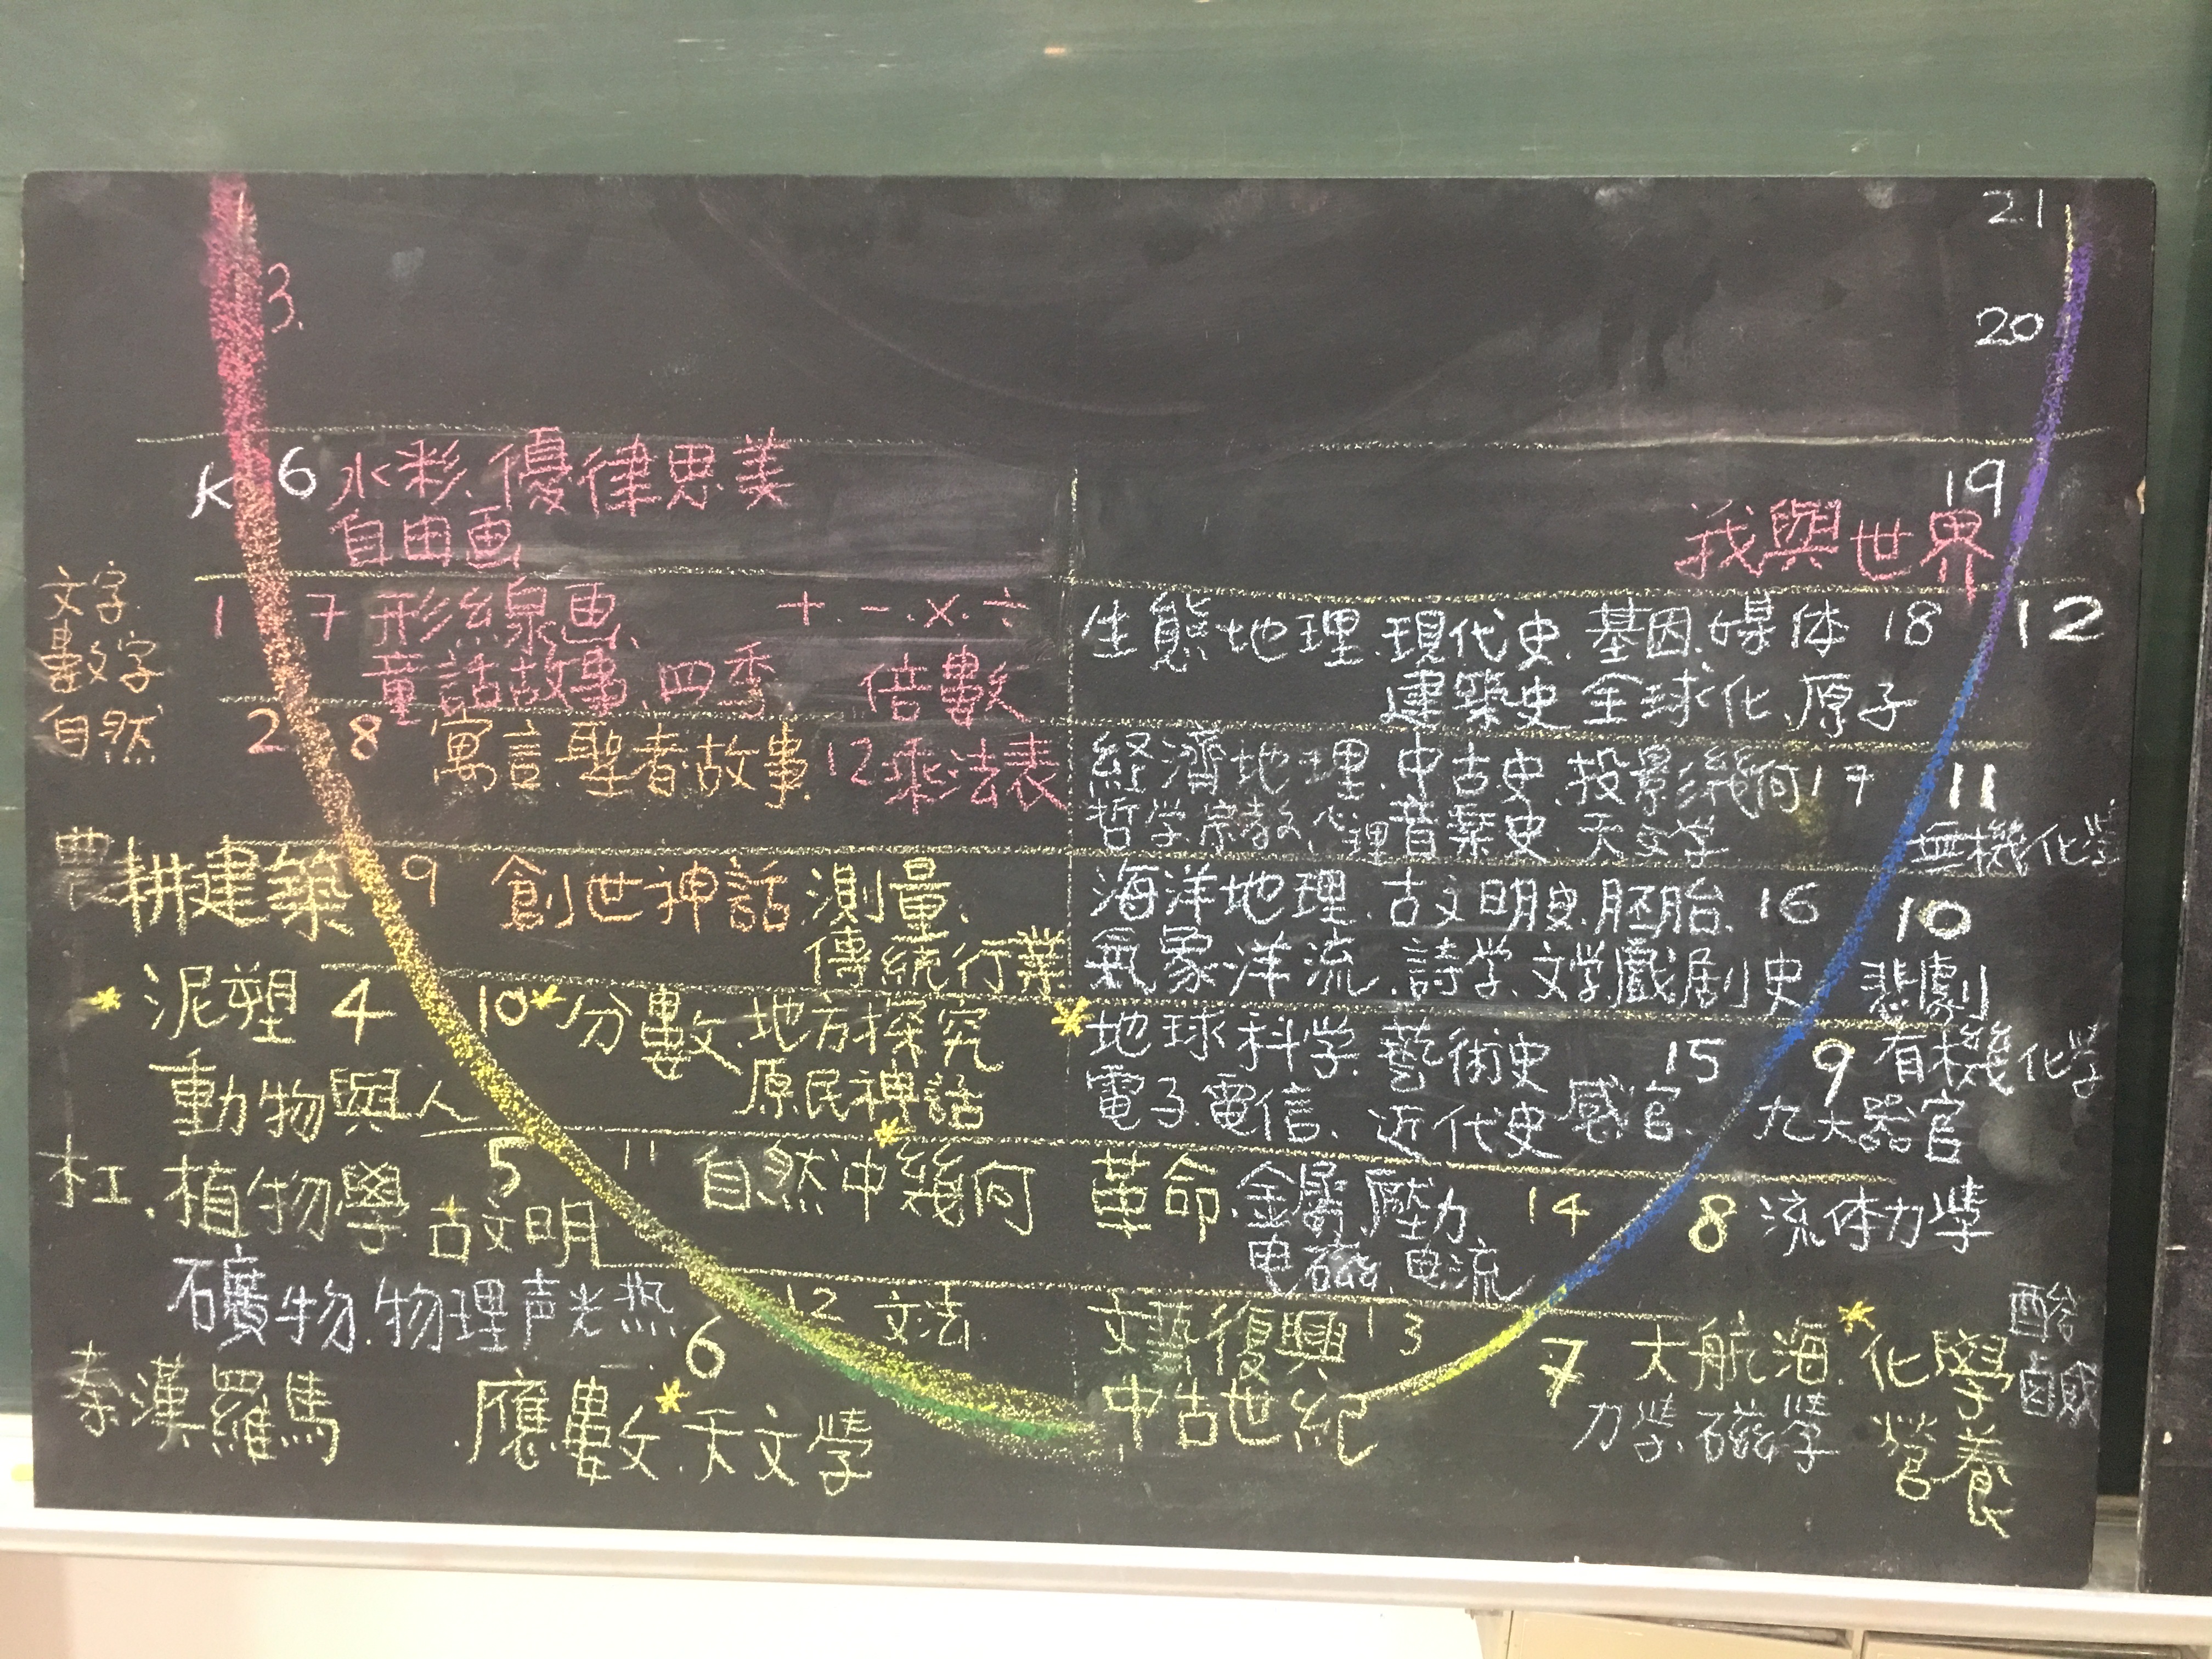 3.
K 6 水彩、優律思美
自由画
文字
數字
自然
1 7 形線画、 +.-.×.÷
童話故事、四季 倍數
2 8 寓言.聖者故事. 12乘法表
農耕建築 9 創世神話 測量、
傳統行業
*泥塑 4 10 *分數、地方探究
原民神話
動物與人
杠.植物學 5 11 *自然中幾何
古文明
礦物.物理声光热
6 12 文法
秦漢羅馬 .應數*.天文學
21
20
19
我與世界
生態地理.現代史.基因.媒体 18 12
建築史.全球化、原子
経濟地理.中古史.投影幾何 17 11
哲学宗教心理音楽史.天文学 無機化学
海洋地理.古文明史.胚胎. 16 10
氣象.洋流.詩学.文学.戲剧史 悲劇
*地球科学.藝術史 15 9 有機化学
電子.電信.近代史 感官. 九大器官
革命.金屬.壓力 14 8 流体力學
电磁.电流
文藝復興 13 7 大航海.*化學 酸鹹
中古世紀 力學.磁學 營養